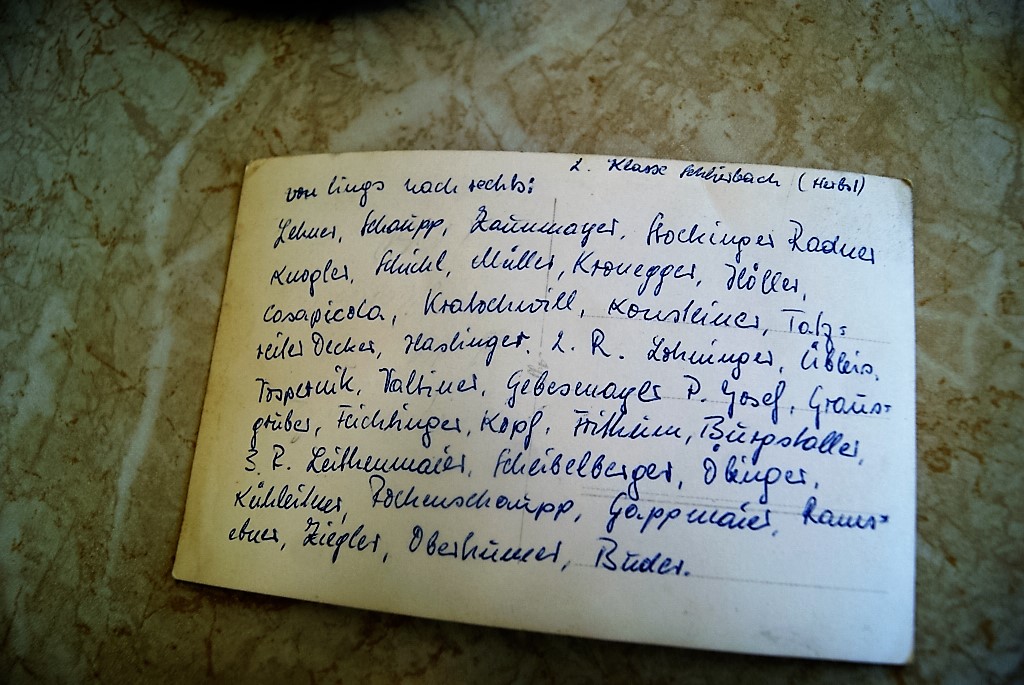 2. Klasse Schlierbach (Herbst)
von lings nach rechts:
Lehner, Schaupp, Zaunmayer, Stockinger Radner
Knogler, Schickl, Müller, Kronegger, Höller,
Casapicola, Kratschwill, Konsteiner, Talz=
reiter Decker, Haslinger. 2. R. Lohninger, Übleis,
Pospernik, Valtiner, Gebesmayer P. Josef, Graus=
gruber, Feichtinger, Kopf, Frithum, Burgstaller,
3. R. Leithenmaier, Scheibelberger, Öbinger,
Kühleitner, Rockenschaupp, Gappmaier, Rams=
ebner, Ziegler, Oberhumer, Buder.